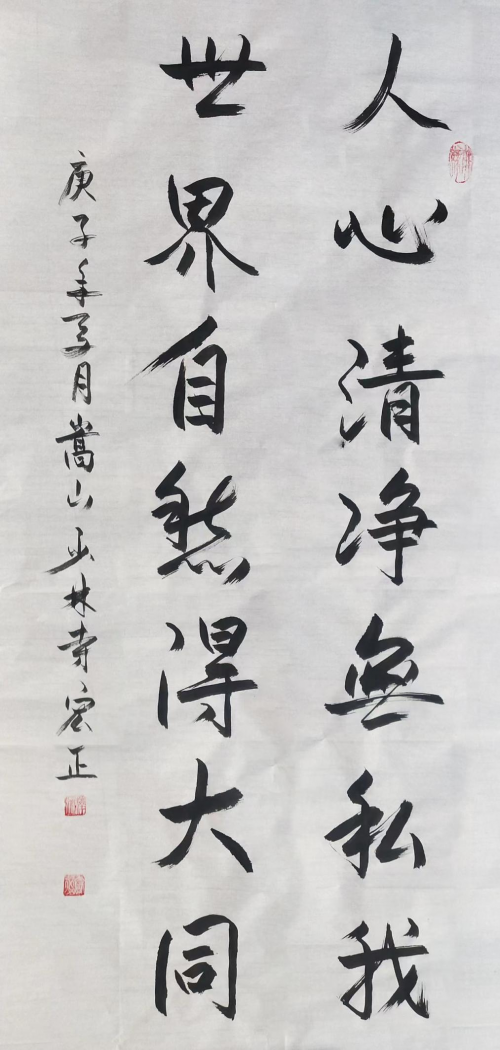 人心清净無私我
世界自然得大同
庚子年弓月嵩山少林寺宏正